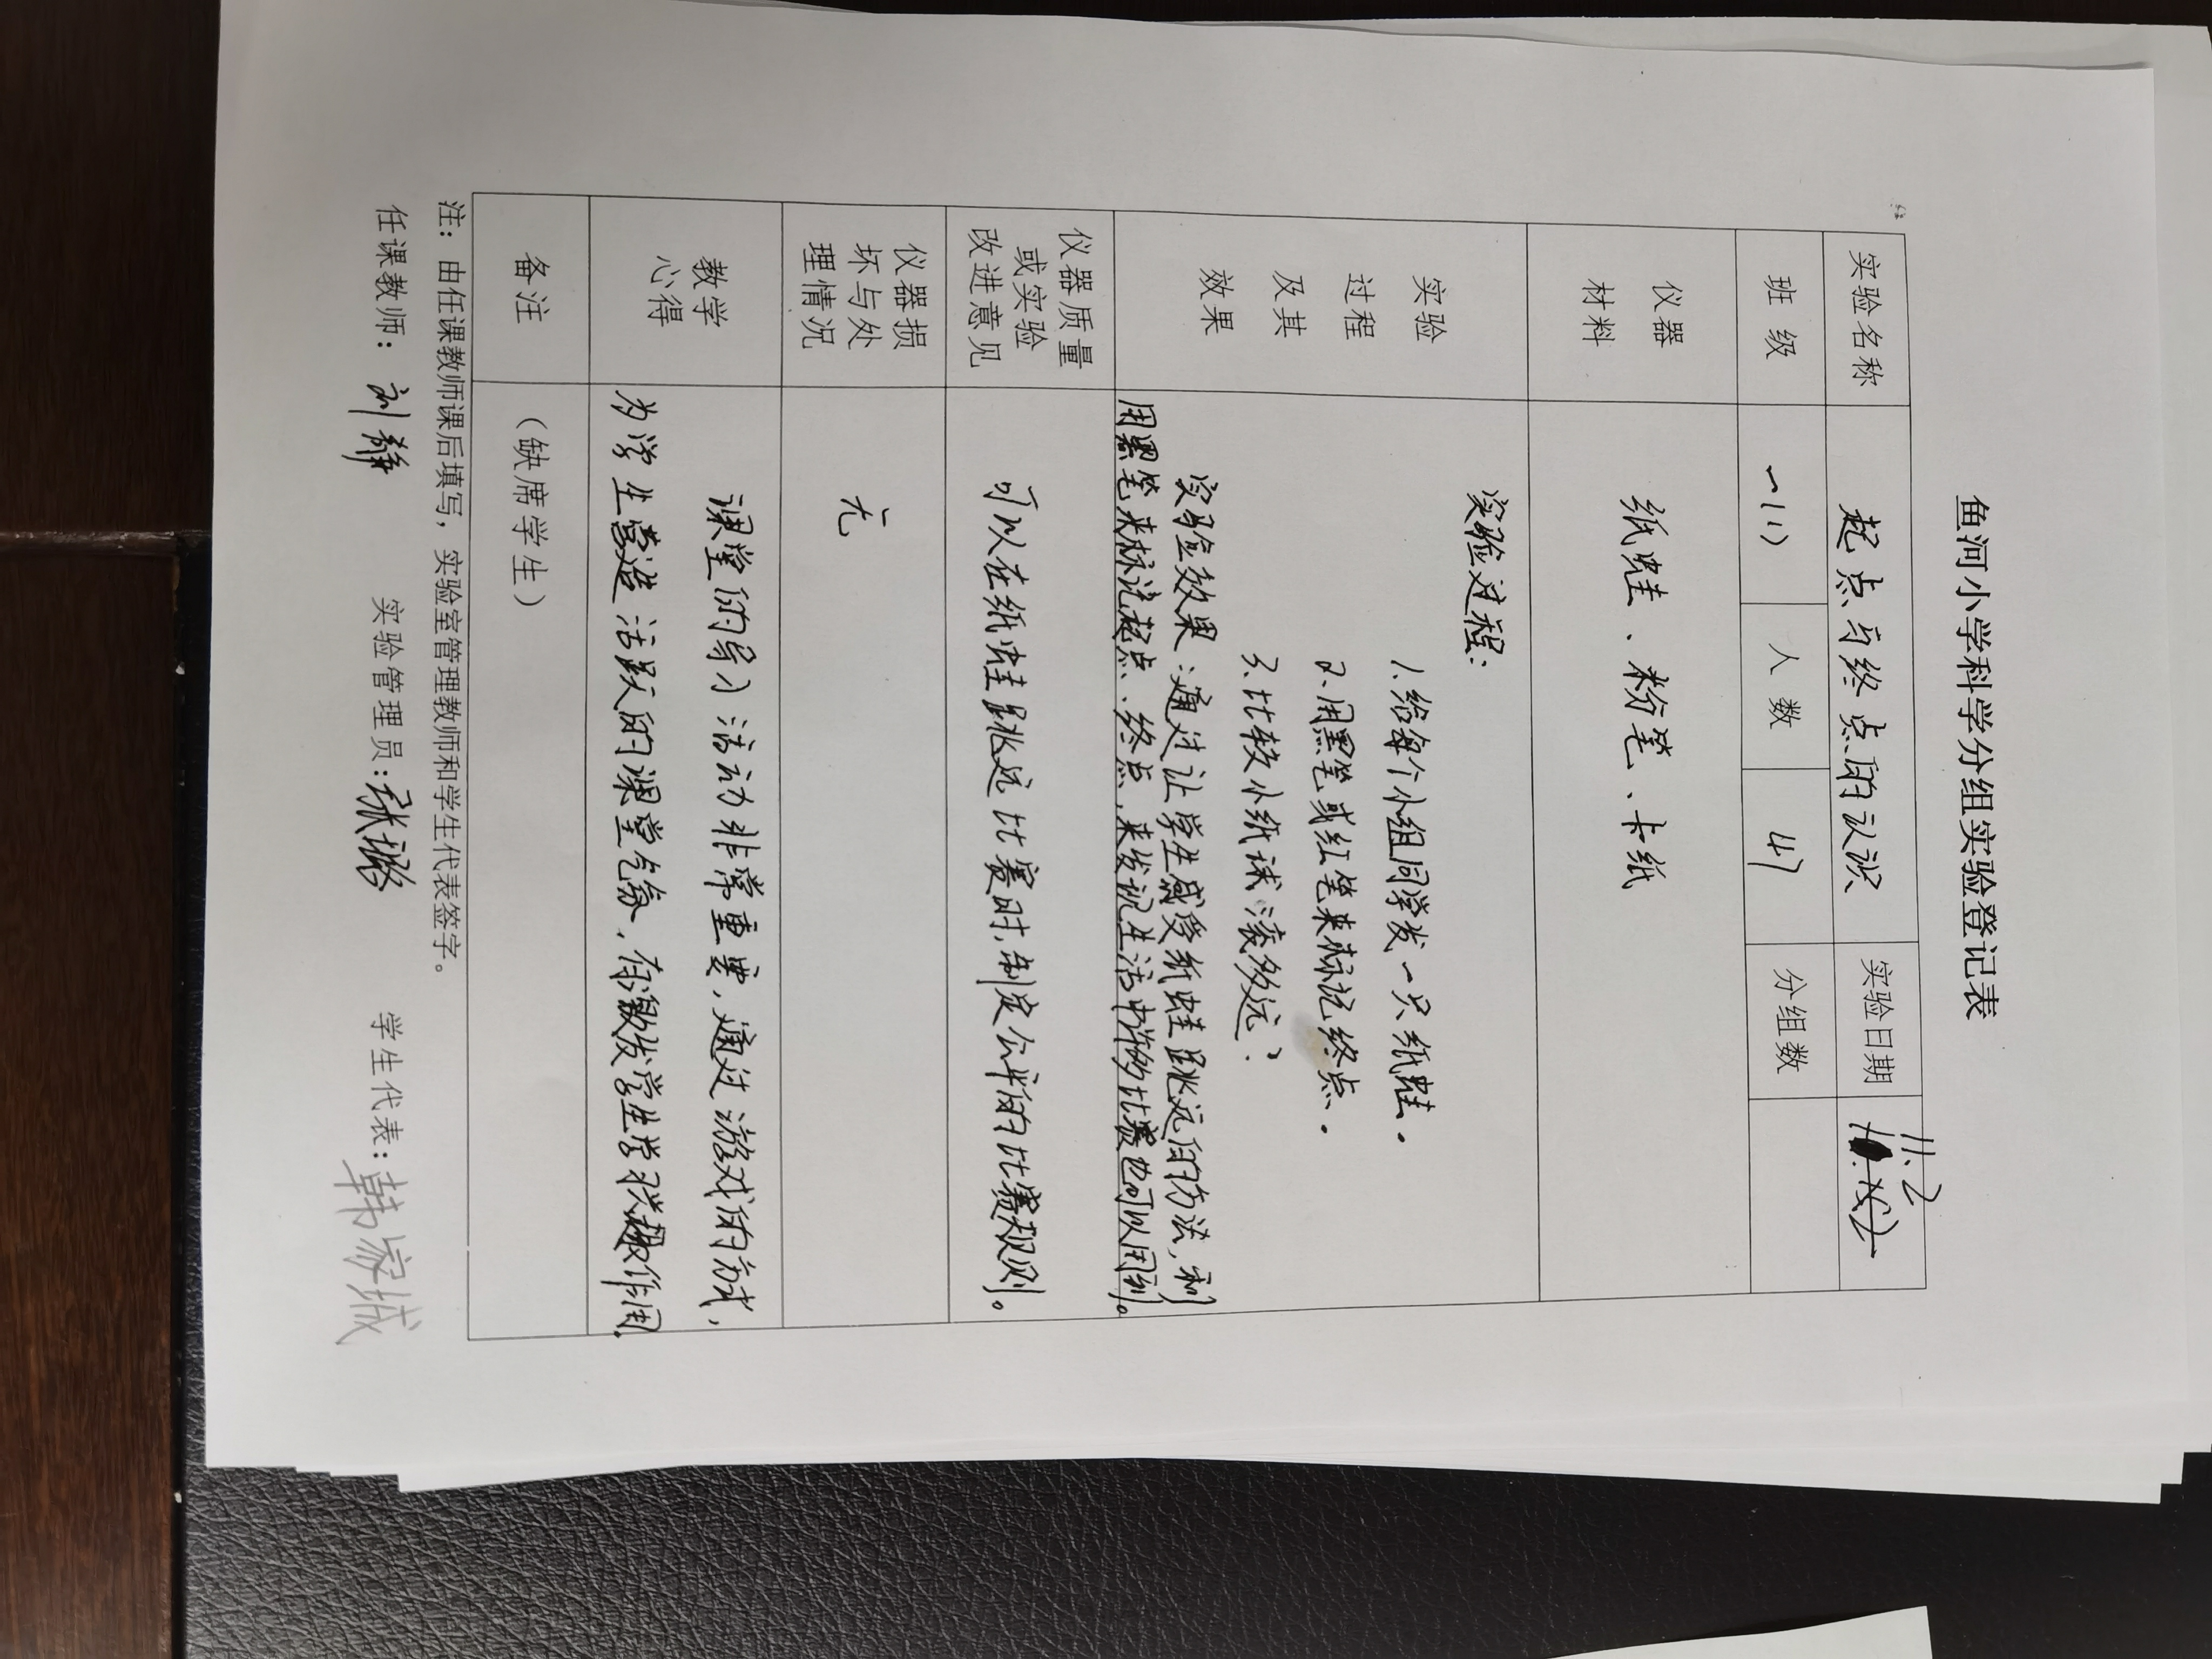 鱼河小学科学分组实验登记表
实验名称 起点与终点的认识 实验日期 11.2
班级 一(1) 人数 47 分组数
仪器
材料
纸蛙、粉笔、卡纸
实验
过程
及其
效果
实验过程:
1.给每个小组同学发一只纸蛙.
2.用黑笔或红笔来标记终点.
3.比较小纸球滚多远?
实验效果:通过让学生感受纸蛙跳远的方法,利
用黑笔来标记起点、终点,来发现生活中许多比赛也可以用到。
仪器质量
或实验
改进意见
可以在纸蛙跳远比赛时,制定公平的比赛规则。
仪器损
坏与处
理情况
无
教学
心得
课堂的导入活动非常重要,通过游戏的方式,
为学生营造活跃的课堂气氛,有激发学生学习兴趣作用.
备注 (缺席学生)
注:由任课教师课后填写,实验室管理教师和学生代表签字。
任课教师:刘静 实验管理员:张璐 学生代表:韩家